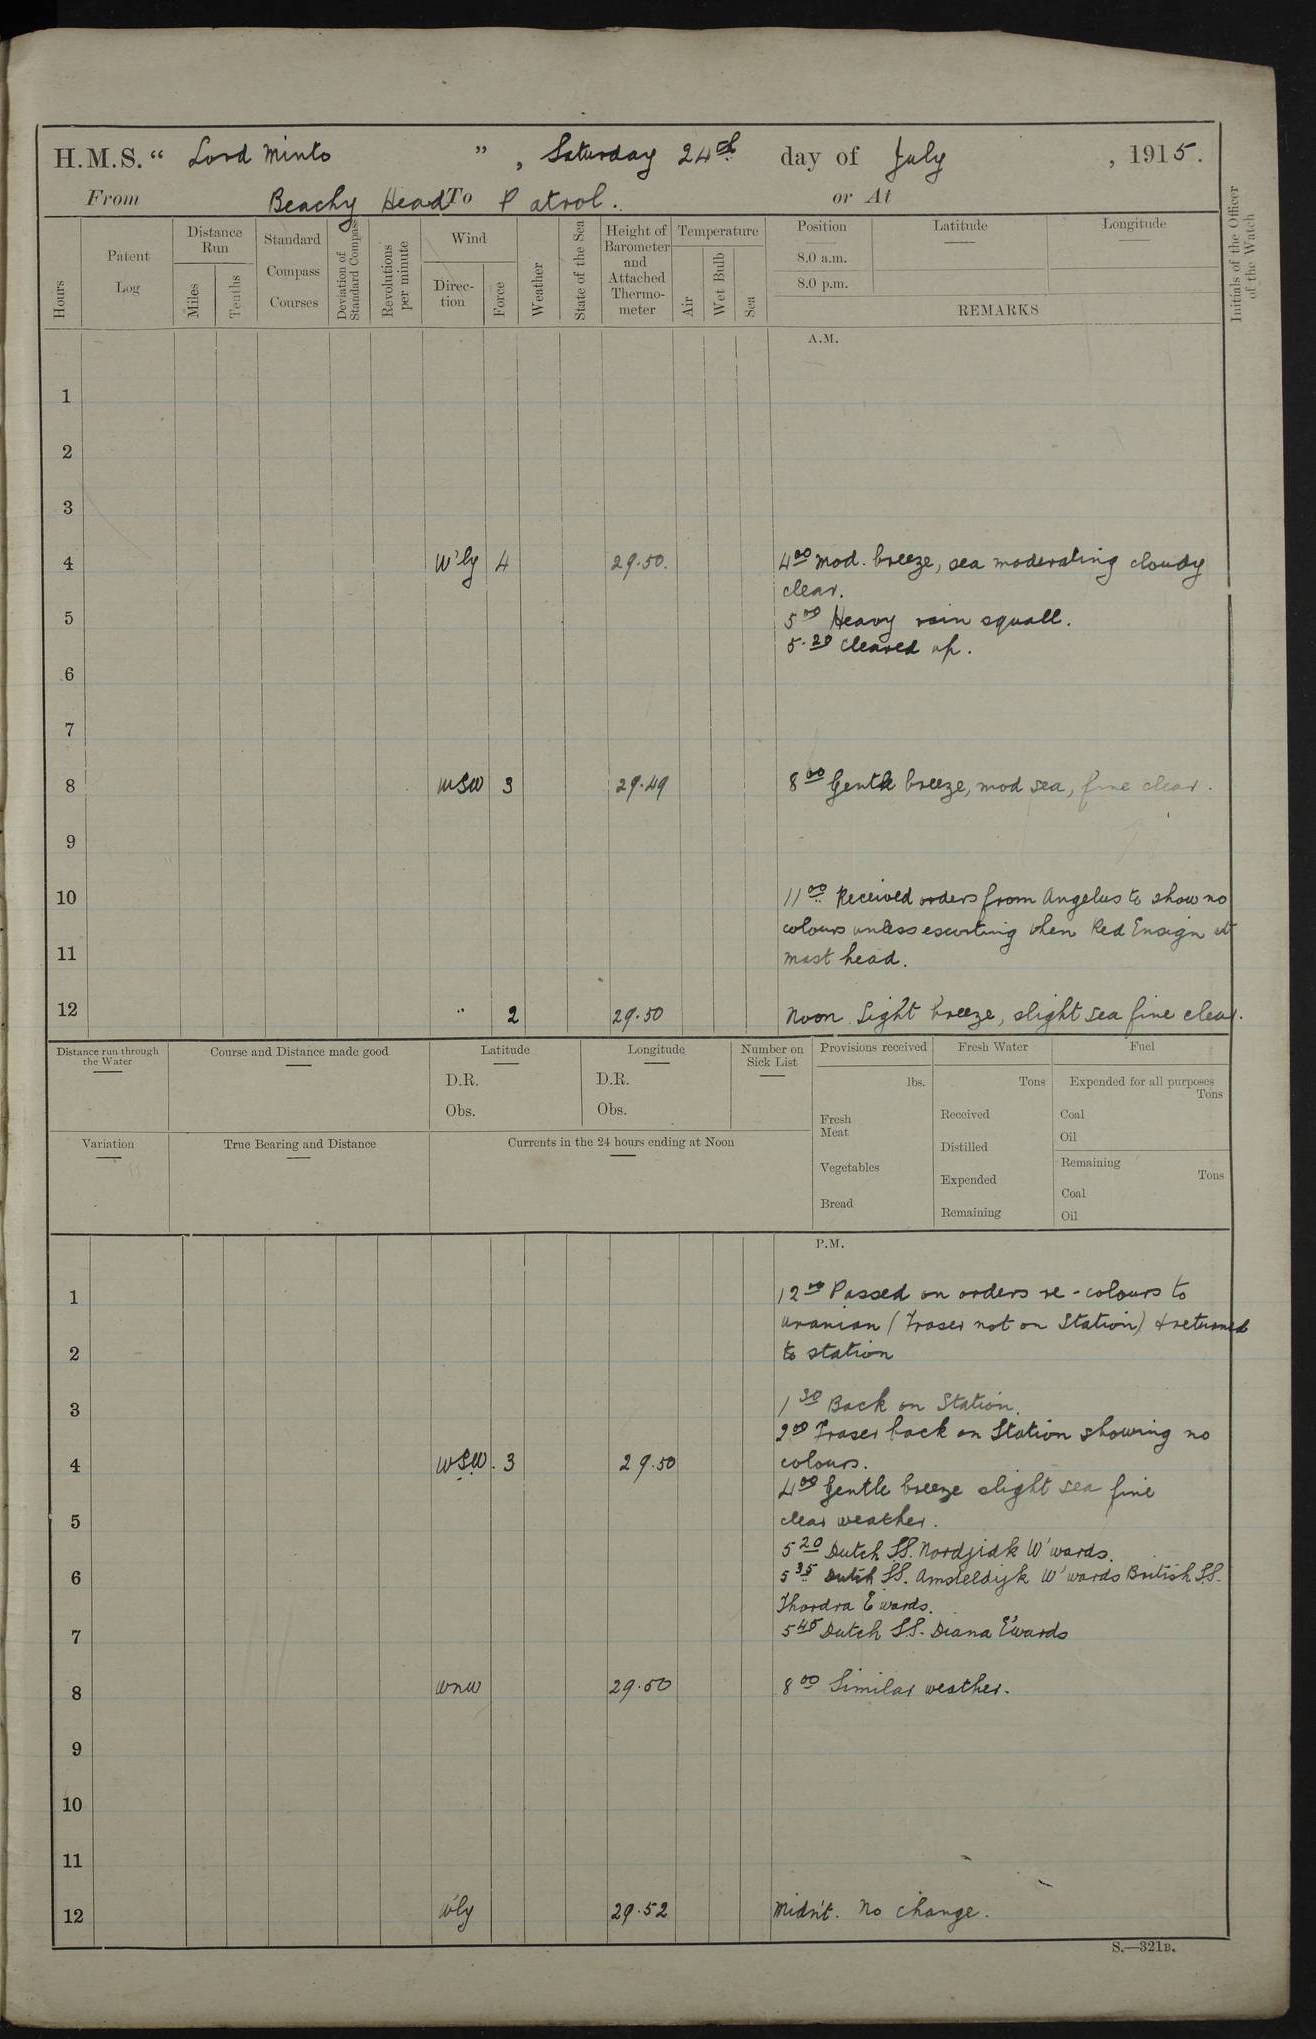 H.M.S. “ Lord Minto ” , Saturday 24th day of July , 1915.
From Beachy Head To Patrol. or At
Hours
Patent Log
Distance Run
Miles
Tenths
Standard Compass Courses
Deviation of Standard Compass
Revolutions per minute
Wind
Direc-tion
Force
Weather
State of the Sea
Height of Barometer and Attached Thermo-meter
Temperature
Air
Wet Bulb
Sea
Position
8.0 a.m.
8.0 p.m.
Latitude
Longitude
REMARKS
Initials of the Officer of the Watch
A.M.
1
2
3
4 W'ly 4 29.50. 4 00 Mod. breeze, sea moderating cloudy
clear.
5 5 00 Heavy rain squall.
5.20 cleared up.
6
7
8 WSW 3 29.49 8 00 Gentle breeze, mod sea, fine clear.
9
10 11 00 Received orders from Angelus to show no
colours unless escorting when Red Ensign at
11 mast head.
12 " 2 29.50 Noon Light breeze, slight sea fine clear.
Distance run through the Water
Course and Distance made good
Latitude
D.R.
Obs.
Longitude
D.R.
Obs.
Number on Sick List
Provisions received
lbs.
Fresh Meat
Vegetables
Bread
Fresh Water
Tons
Received
Distilled
Expended
Remaining
Fuel
Expended for all purposes
Tons
Coal
Oil
Remaining
Tons
Coal
Oil
Variation
True Bearing and Distance
Currents in the 24 hours ending at Noon
P.M.
1 12 00 Passed on orders re-colours to
Uranian (Fraser not on Station) & returned
2 to station
3 1 30 Back on Station.
2 00 Fraser back on Station showing no
4 WSW. 3 29.50 colours.
4 00 Gentle breeze slight sea fine
5 clear weather.
5 20 Dutch SS. Nordjidk W'wards.
6 5 35 Dutch SS. Amsteldijk W'wards British SS.
Thordra E'wards.
7 5 45 Dutch SS. Diana E'wards
8 WNW 29.50 8 00 Similar weather.
9
10
11
12 W'ly 29.52 Midn't. No change.
S.—321B.